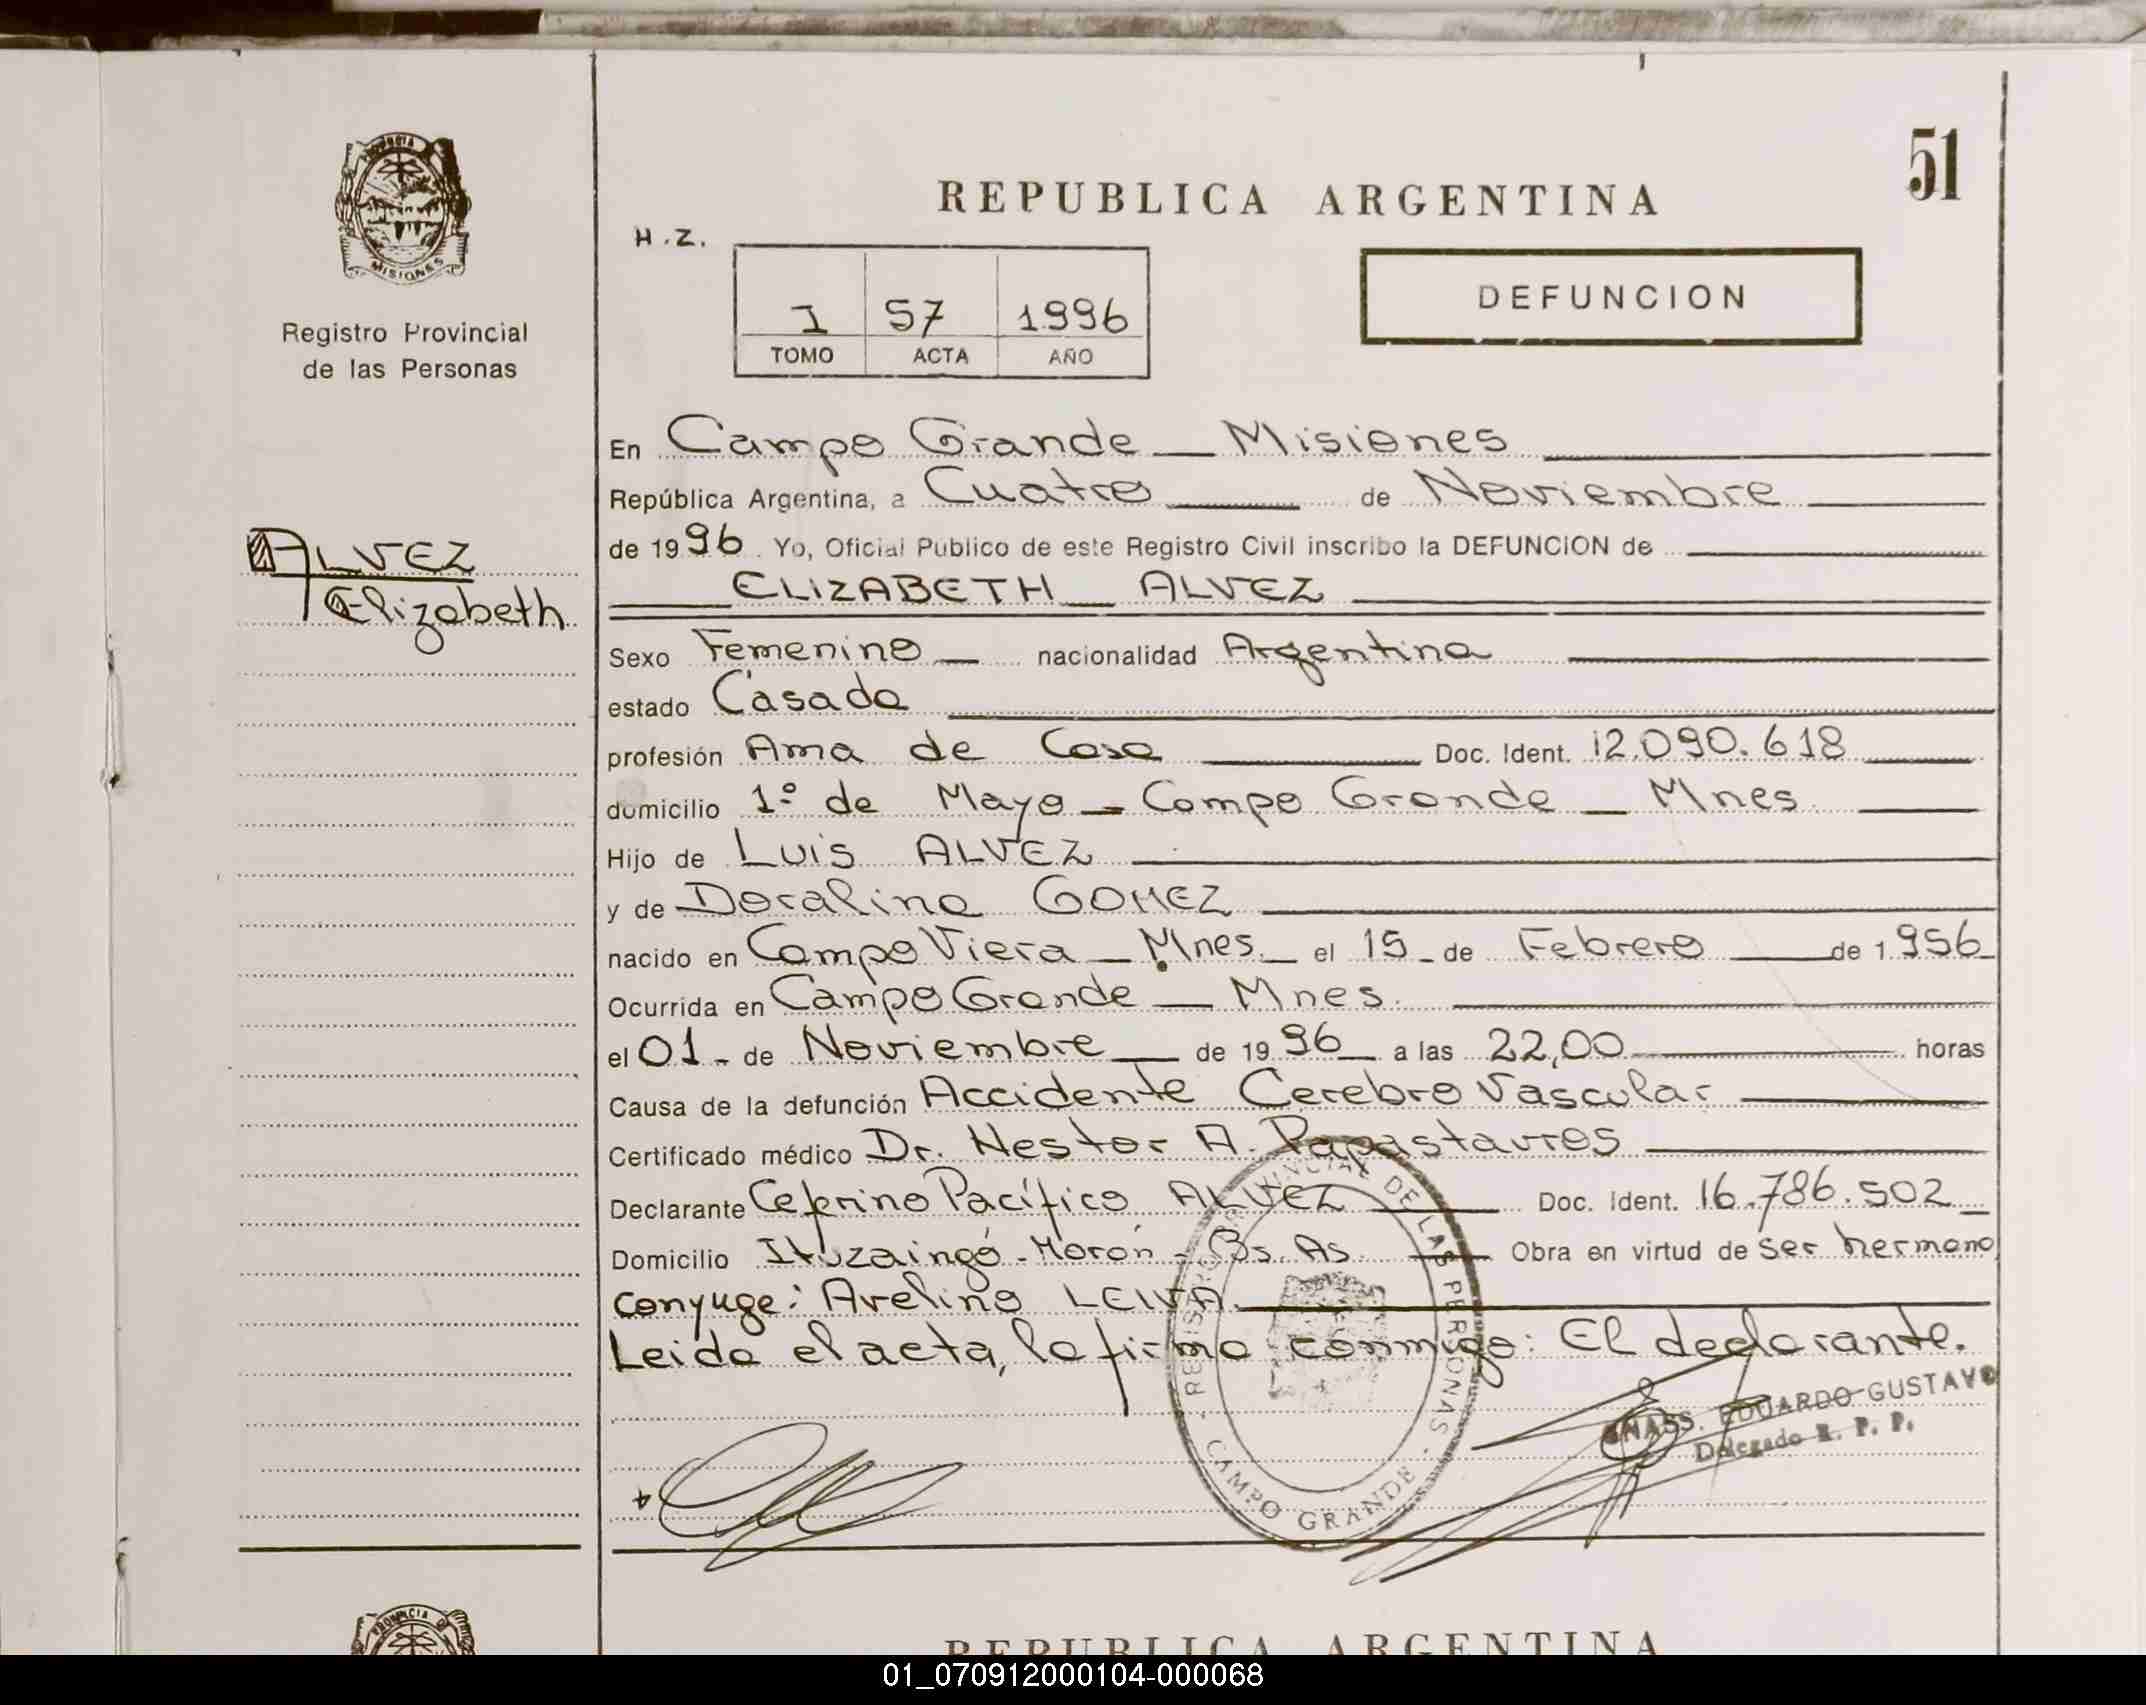 51
PROVINCIA
MISIONES
REPUBLICA ARGENTINA
H.Z.
DEFUNCION
I 57 1996
TOMO ACTA AÑO
Registro Provincial
de las Personas
En Campo Grande Misiones
República Argentina, a Cuatro de Noviembre
de 1996. Yo, Oficial Público de este Registro Civil inscribo la DEFUNCION de
ALVEZ
Elizabeth
ELIZABETH ALVEZ
Sexo Femenino nacionalidad Argentina
estado Casada
profesión Ama de Casa Doc. Ident. 12.090.618
domicilio 1º de Mayo - Campo Grande - Mnes
Hijo de Luis ALVEZ
y de Doralina GOMEZ
nacido en Campo Viera - Mnes. el 15 - de Febrero de 1.956
Ocurrida en Campo Grande - Mnes.
el 01 - de Noviembre de 1996 a las 22,00 horas
Causa de la defunción Accidente Cerebro Vascular
Certificado médico Dr. Nestor A. Papastavros
Declarante Ceferino Pacífico ALVEZ Doc. Ident. 16.786.502
Domicilio Ituzaingó - Morón - Bs. As. Obra en virtud de ser hermano
conyuge: Avelino LEIVA.
Leida el acta, la firma conmigo: El declarante.
REGISTRO PROVINCIAL DE LAS PERSONAS - CAMPO GRANDE -
EDUARDO GUSTAVO
Delegado R. P. P.
PROVINCIA DE
REPUBLICA ARGENTINA
01_070912000104-000068